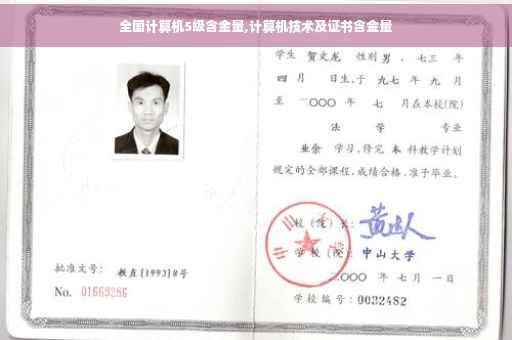 全国计算机5级含金量,计算机技术及证书含金量
学生 贺文龙 性别 男 、七三 年
四 月 日生,于 九七 年 九 月
至 二〇〇〇 年 七 月在本校(院)
法 学 专业
业余 学习,修完 本 科教学计划
规定的全部课程,成绩合格,准予毕业。
校(院)长:
学校(院): 中山大学
二〇〇〇 年 七 月 一 日
学校编号: 0032482
批准文号: 教直[1993]8号
No. 01669286